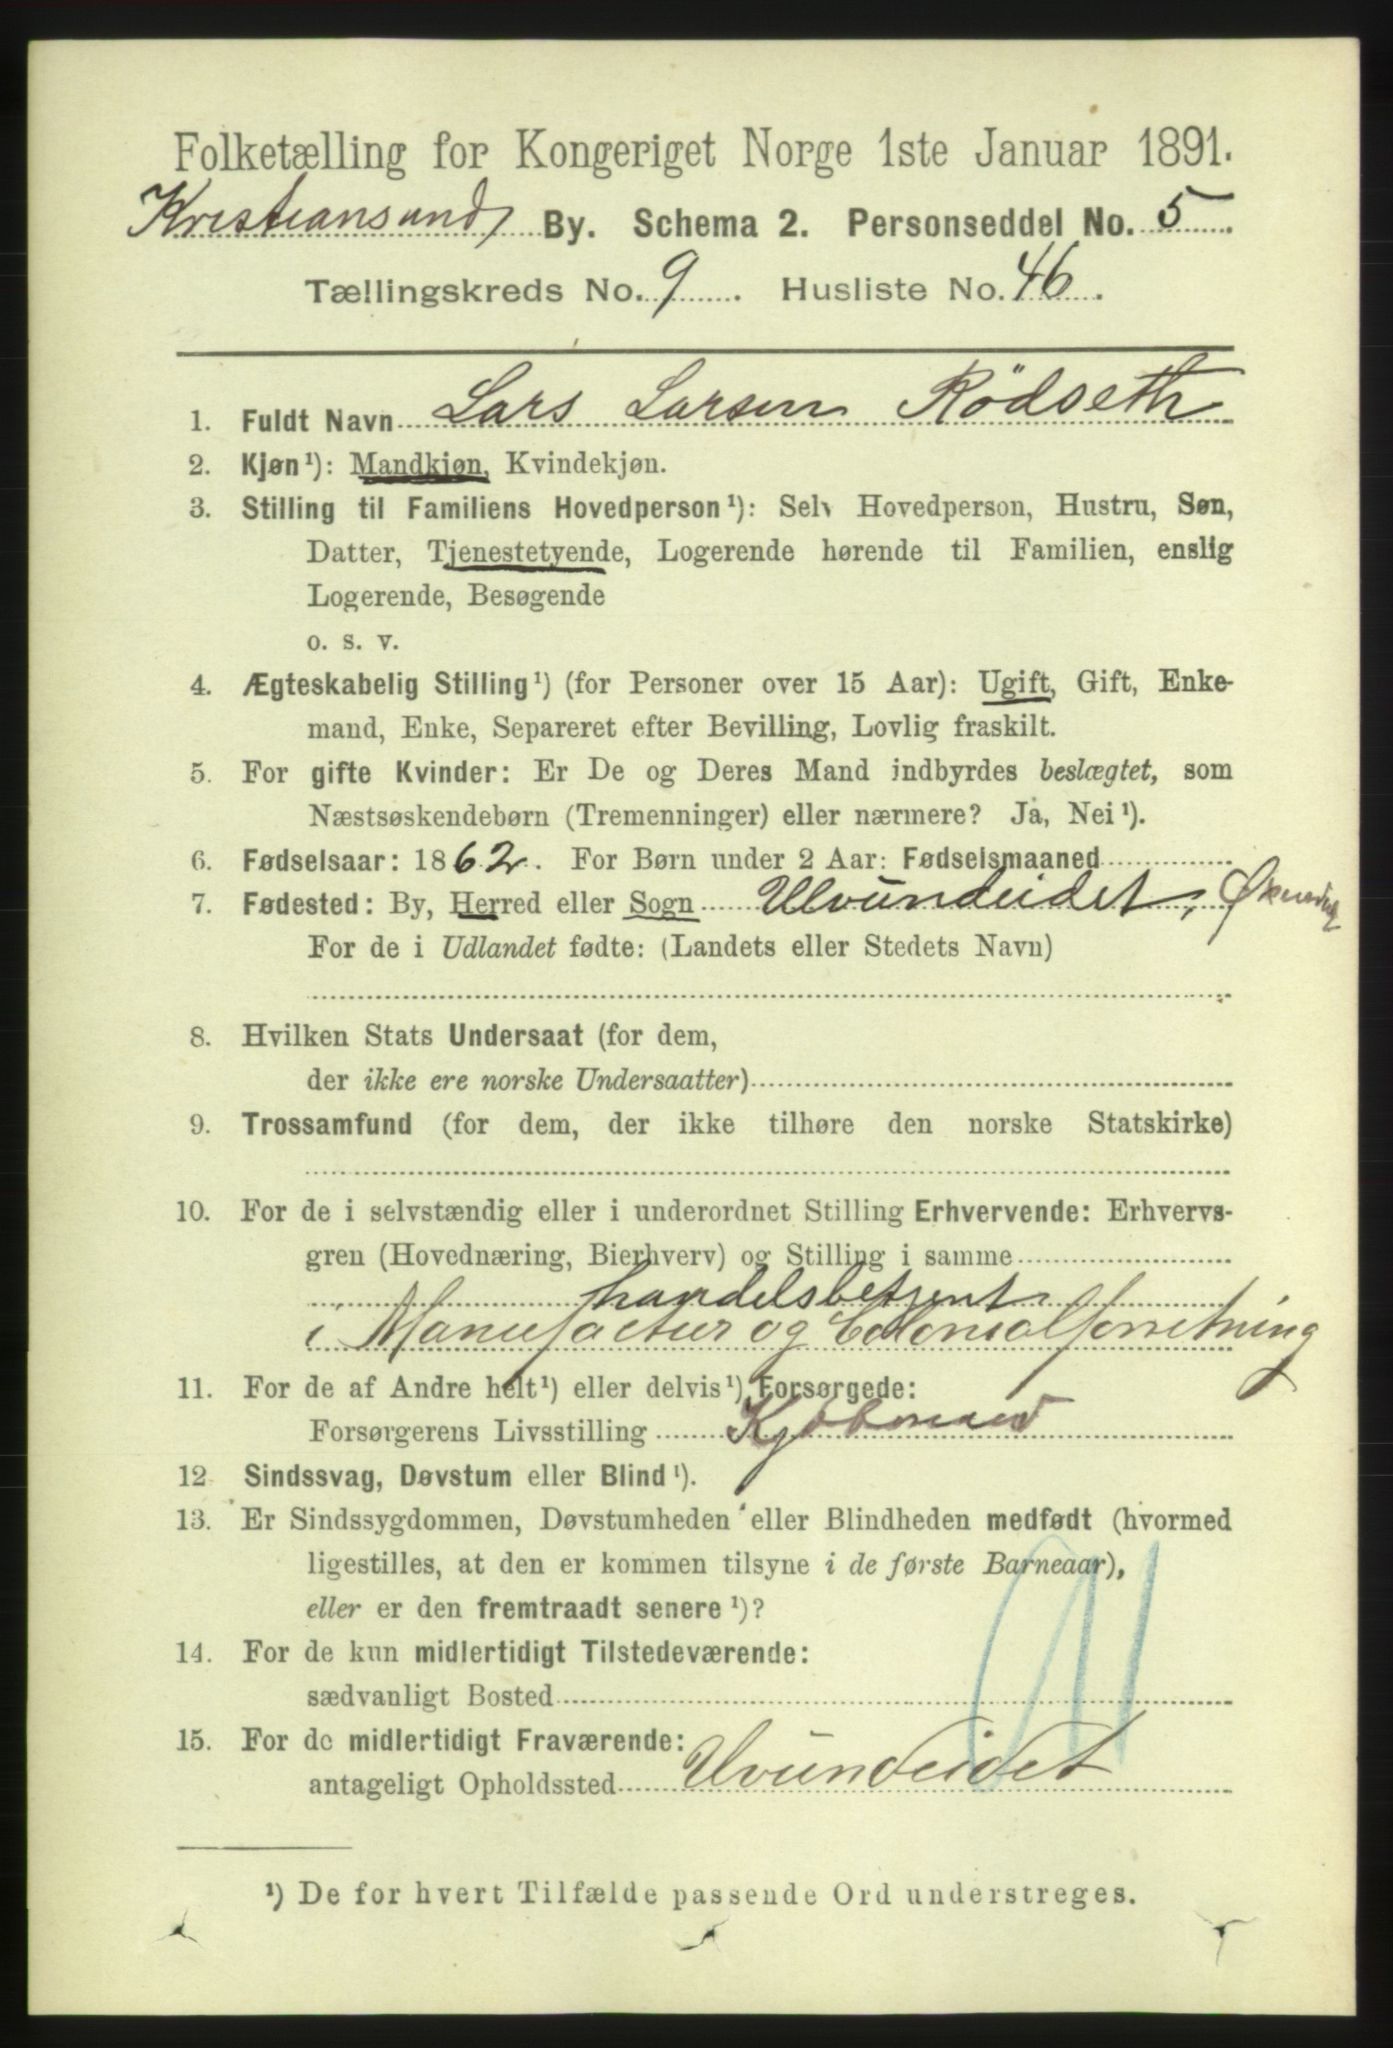 Folketælling for Kongeriget Norge 1ste Januar 1891.
Kristiansund By. Schema 2. Personseddel No. 5
Tællingskreds No. 9. Husliste No. 46.
1. Fuldt Navn Lars Larsen Rödseth
2. Kjøn¹): Mandkjøn, Kvindekjøn.
3. Stilling til Familiens Hovedperson¹): Selv Hovedperson, Hustru, Søn,
Datter, Tjenestetyende, Logerende hørende til Familien, enslig
Logerende, Besøgende
o. s. v.
4. Ægteskabelig Stilling¹) (for Personer over 15 Aar): Ugift, Gift, Enke-
mand, Enke, Separeret efter Bevilling, Lovlig fraskilt.
5. For gifte Kvinder: Er De og Deres Mand indbyrdes beslægtet, som
Næstsøskendebørn (Tremenninger) eller nærmere? Ja, Nei¹).
6. Fødselsaar: 1862. For Børn under 2 Aar: Fødselsmaaned
7. Fødested: By, Herred eller Sogn Ulvundeidet, Øksendal
For de i Udlandet fødte: (Landets eller Stedets Navn)
8. Hvilken Stats Undersaat (for dem,
der ikke ere norske Undersaatter)
9. Trossamfund (for dem, der ikke tilhøre den norske Statskirke)
10. For de i selvstændig eller i underordnet Stilling Erhvervende: Erhvervs-
gren (Hovednæring, Bierhverv) og Stilling i samme
handelsbetjent
i Manufactur og Colonialforretning
11. For de af Andre helt¹) eller delvis¹) Forsørgede:
Forsørgerens Livsstilling Kjøbmand
12 Sindssvag, Døvstum eller Blind¹).
13. Er Sindssygdommen, Døvstumheden eller Blindheden medfødt (hvormed
ligestilles, at den er kommen tilsyne i de første Barneaar),
eller er den fremtraadt senere¹)?
14. For de kun midlertidigt Tilstedeværende:
sædvanligt Bosted
15. For de midlertidigt Fraværende:
antageligt Opholdssted Ulvundeidet
¹) De for hvert Tilfælde passende Ord understreges.